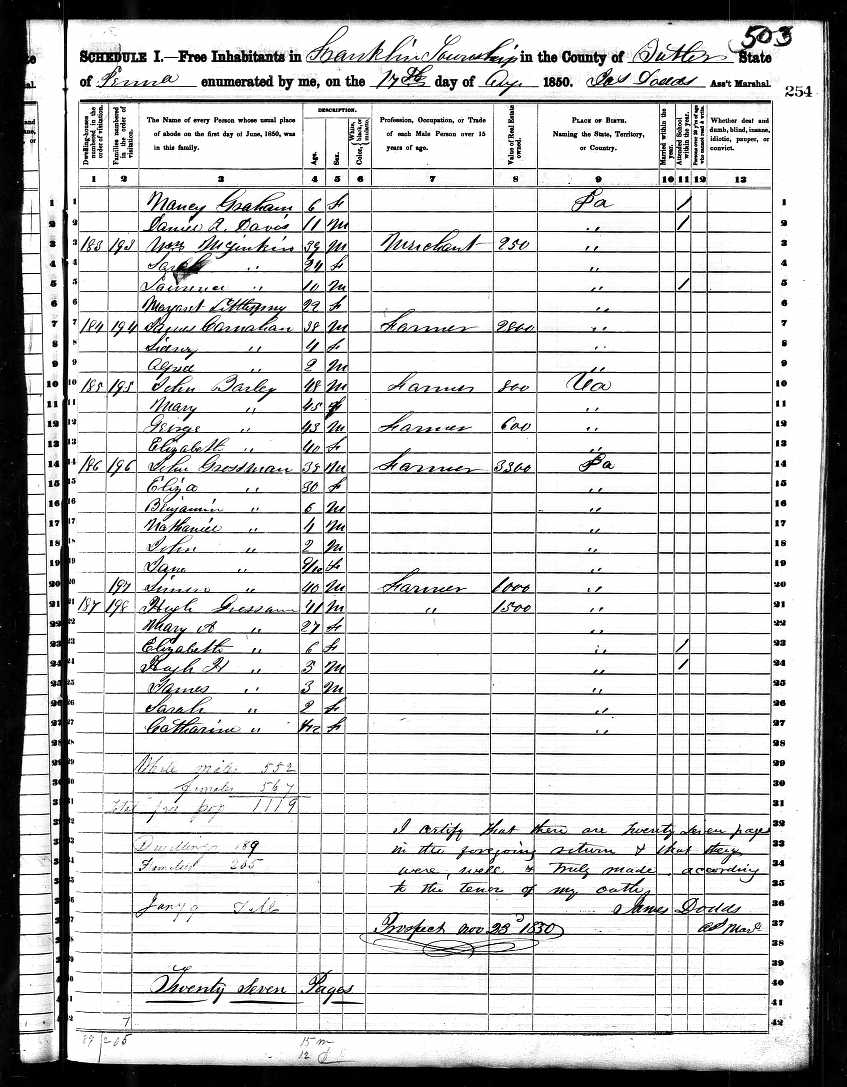 503
SCHEDULE I.—Free Inhabitants in Franklin Township in the County of Butler State
of Penna enumerated by me, on the 17th day of Aug. 1850. Jas Dodds Ass't Marshal.
254
Dwelling-houses numbered in the order of visitation.
Families numbered in the order of visitation.
The Name of every Person whose usual place of abode on the first day of June, 1850, was in this family.
DESCRIPTION.
Age.
Sex.
Color, White, black, or mulatto.
Profession, Occupation, or Trade of each Male Person over 15 years of age.
Value of Real Estate owned.
PLACE OF BIRTH. Naming the State, Territory, or Country.
Married within the year.
Attended School within the year.
Persons over 20 y'rs of age who cannot read & write.
Whether deaf and dumb, blind, insane, idiotic, pauper, or convict.
1 2 3 4 5 6 7 8 9 10 11 12 13
1 Nancy Graham 6 f Pa / 1
2 Daniel A. Davis 11 m " / 2
3 183 193 Wm 39 m Merchant 250 " 3
4 Sarah " 24 f " 4
5 Lawrence " 10 m " / 5
6 Margaret 22 f " 6
7 184 194 James Carnahan 38 m Farmer 2800 " 7
8 Sidney " 4 f " 8
9 " 2 m " 9
10 185 195 John Barley 48 m Farmer 800 Va 10
11 Mary " 45 f " 11
12 George " 43 m Farmer 600 " 12
13 Elizabeth " 40 f " 13
14 186 196 John Grossman 39 m Farmer 3300 Pa 14
15 Eliza " 30 f " 15
16 Benjamin " 6 m " 16
17 Nathaniel " 4 m " 17
18 John " 2 m " 18
19 Jane " 9/12 f " 19
20 197 Simon " 40 m Farmer 1000 " 20
21 187 198 Hugh 41 m " 1500 " 21
22 Mary A " 27 f " 22
23 Elizabeth " 6 f " / 23
24 Hugh H " 3 m " / 24
25 James " 3 m " 25
26 Sarah " 2 f " 26
27 Catharine " f " 27
28
29 White males 552
30 females 567
31 Total free pop 1119
32 I certify that there are twenty seven pages
33 Dwellings 189 in the foregoing return & that they
34 Families 205 were well & truly made according
35 to the tenor of my oath
36 James Dodds
37 Prospect Nov 23d 1850 Ast Mar
38
39
40 Twenty Seven Pages
41
42
7
205
15 m
12 f